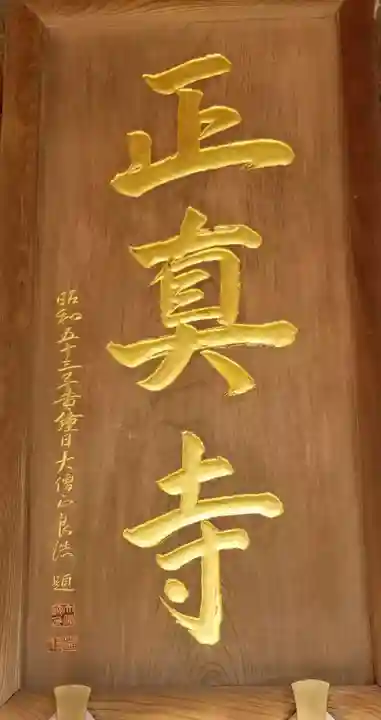 正真寺
昭和五十三年黄鐘日大僧正良浩題